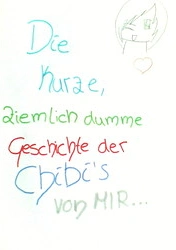 Die
Kurze,
ziemlich dumme
Geschichte der
Chibi's
von MIR...